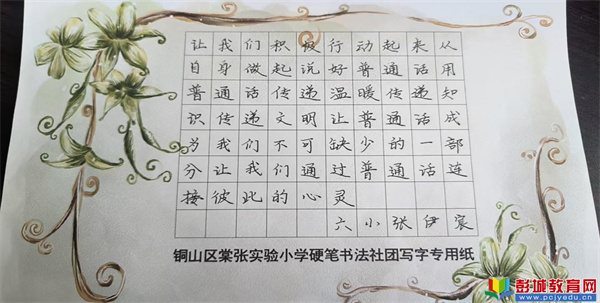 让我们积极行动起来从
自身做起说好普通话用
普通话传递温暖传递知
识传递文明让普通话成
为我们不可缺少的一部
分让我们通过普通话连
接彼此的心灵
六小张伊宸
铜山区棠张实验小学硬笔书法社团写字专用纸
彭城教育网
www.pcjyedu.cn